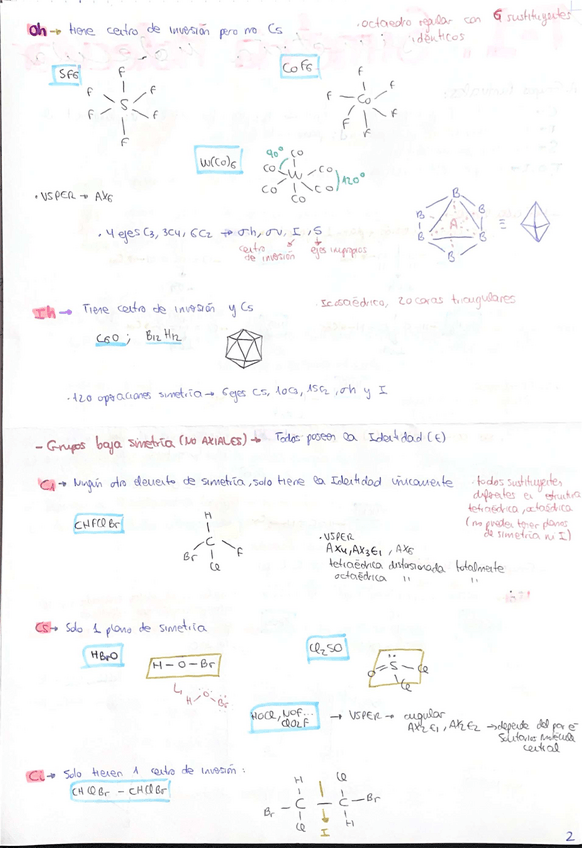 Oh → tiene centro de inversión pero no C5
· octaedro regular con 6 sustituyentes idénticos
SF6
F
F F
S
F F
F
CoF6
F
F F
Co
F F
F
W(CO)6
90°
CO
CO CO
W
CO CO
CO
120°
· VSPER → AX6
· 4 ejes C3, 3C4, 6C2 → σh, σv, I, S
centro de inversión
ejes impropios
B
B B
A
B B
B
≡
Ih → Tiene centro de inversión y C5
· Icosaédrica, 20 caras triangulares
C60 ; B12H12
· 120 operaciones simetría → 6 ejes C5, 10C3, 15C2, σh y I
- Grupos baja simetría (NO AXIALES) → Todos poseen la Identidad (E)
C1 → Ningún otro elemento de simetría, solo tiene la Identidad únicamente
· todos sustituyentes
diferentes en estructura
tetraédrica, octaédrica
(no pueden tener planos
de simetría ni I)
CHFClBr
H
C
Br F
Cl
· VSPER
AX4, AX3E1, AX6
tetraédrica distorsionada totalmente
octaédrica " "
Cs → Solo 1 plano de simetría
HBrO
H - O - Br
↳ H O Br
Cl2SO
O = S - Cl
Cl
HOCl, NOF...
ClO2F
→ VSPER → angular
AX2E1, AX2E2 → depende del par e-
solitarios molécula
central
Ci → Solo tienen 1 centro de inversión :
CHClBr - CHClBr
H Cl
Br - C - C - Br
Cl H
I
2